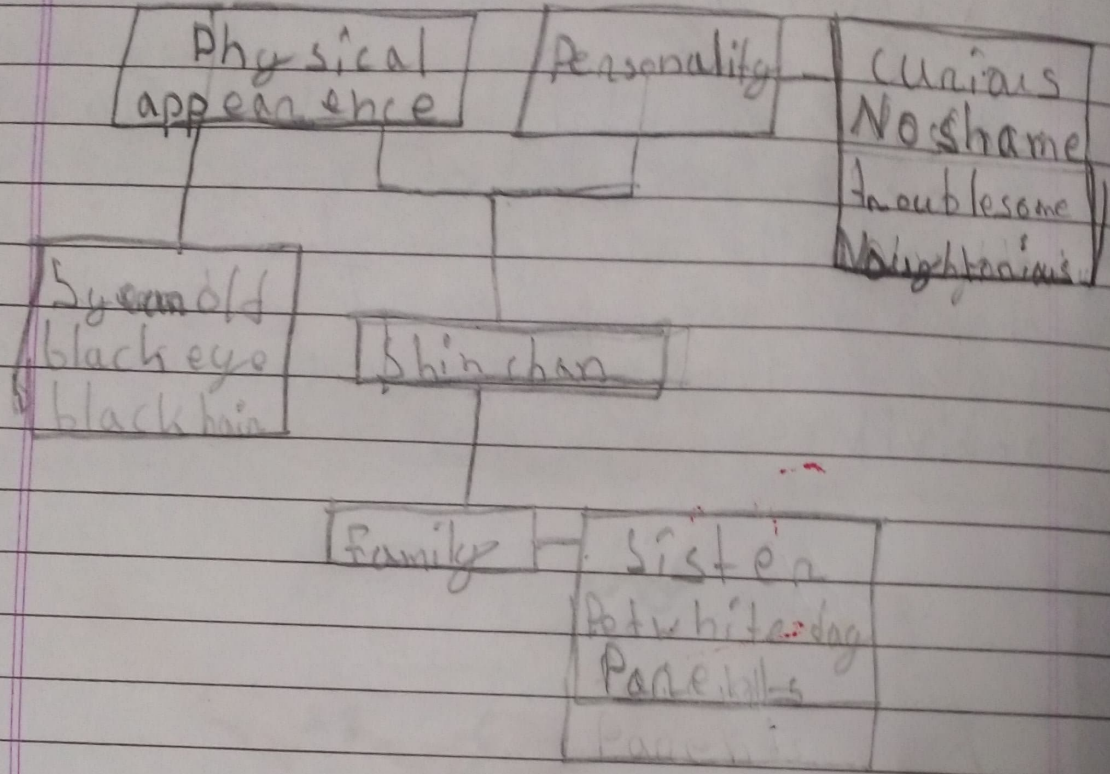 Physical
appearence
Personality
Curious
No shame
troublesome
5 year old
black eye
black hair
Shin chan
Family
Sister
Pet white dog